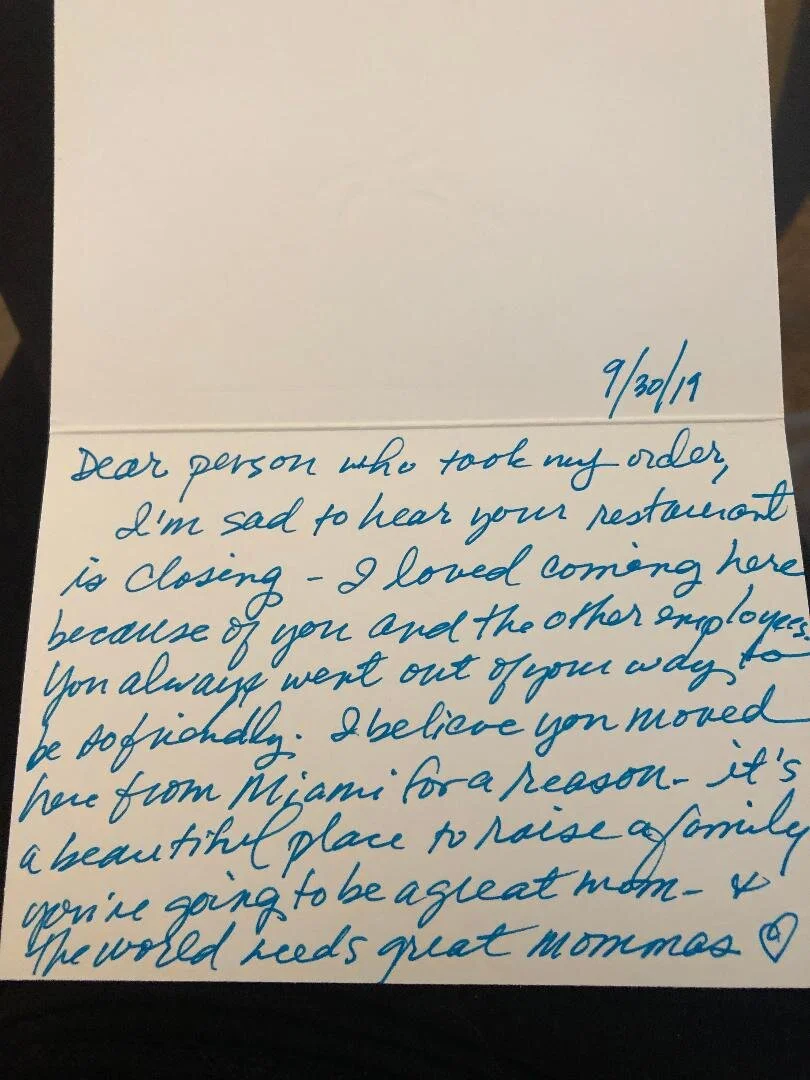 9/30/19
Dear person who took my order,
I'm sad to hear your restaurant
is closing - I loved coming here
because of you and the other employees
You always went out of your way to
be so friendly. I believe you moved
here from Miami for a reason - it's
a beautiful place to raise a family
you're going to be a great mom - &
the world needs great mommas ♡